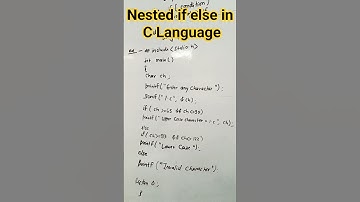 ( condition)
Nested if else in
C Language
# include <stdio.h>
int main()
{
char ch;
printf("Enter any character");
scanf("%c", &ch)
if (ch>=65 && ch<=90)
printf("Upper Case character = %c", ch);
else
printf("Lower Case");
else
printf("Invalid character")